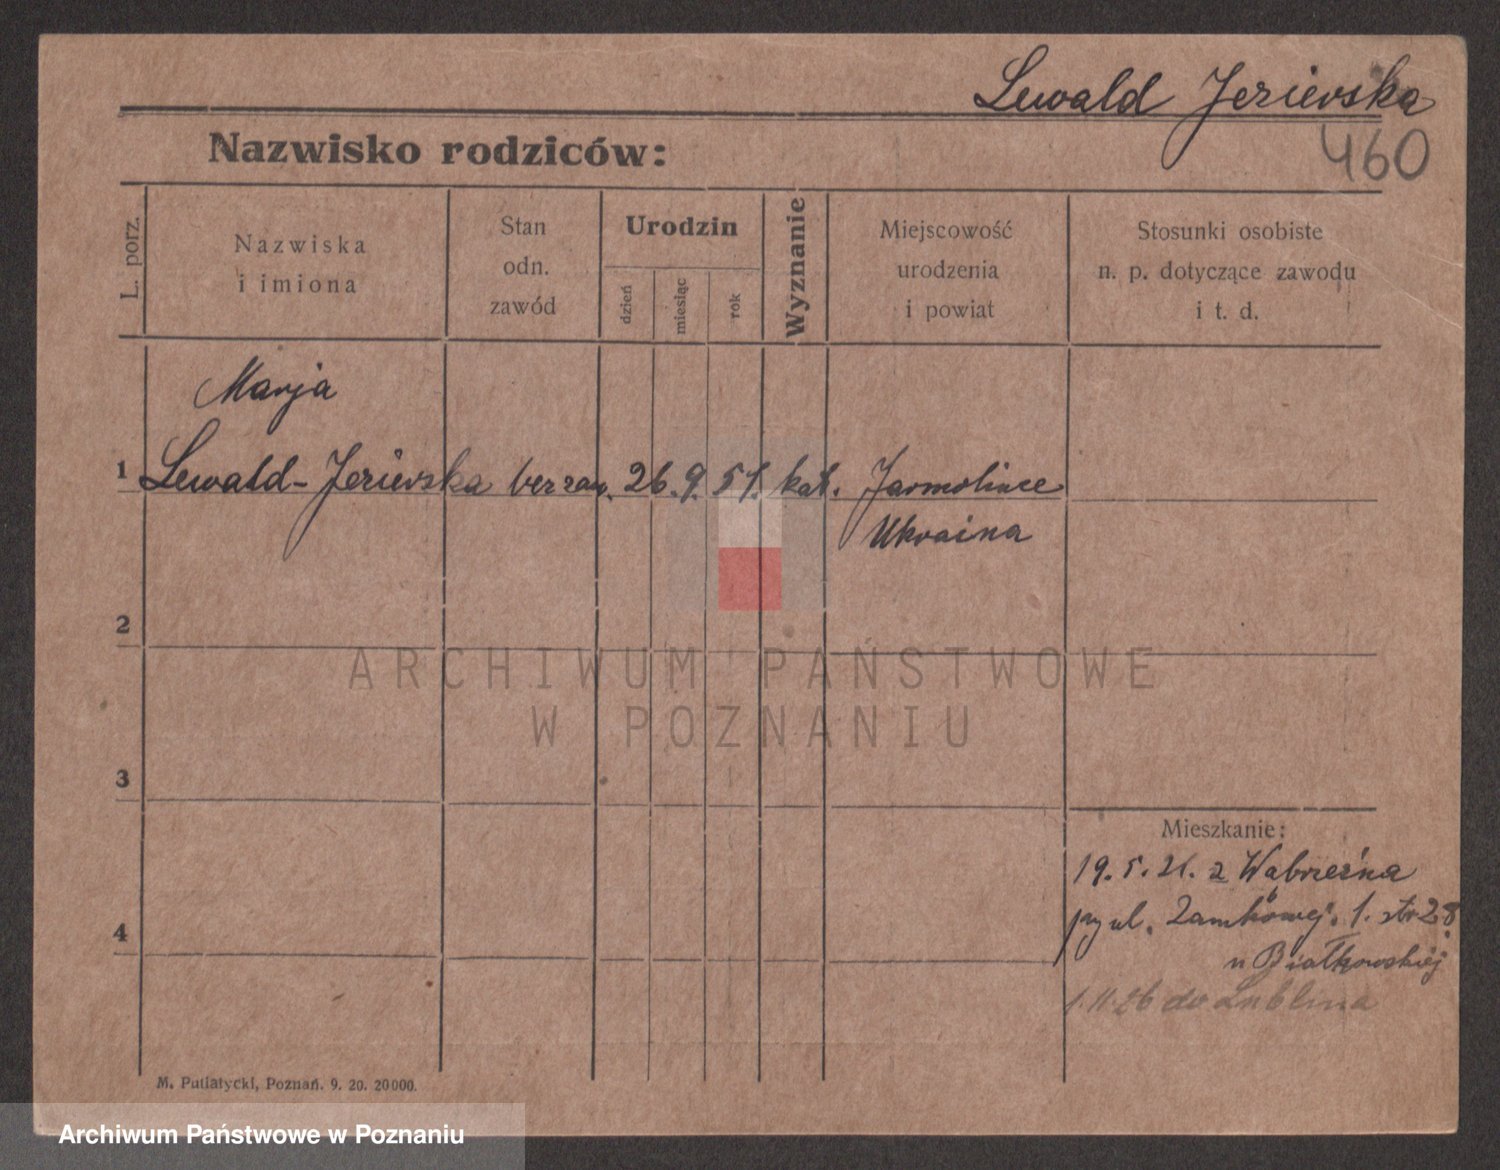 Lewald Jezierska
460
Nazwisko rodziców:
L. porz.
Nazwiska
i imiona
Stan
odn.
zawód
Urodzin
dzień
miesiąc
rok
Wyznanie
Miejscowość
urodzenia
i powiat
Stosunki osobiste
n. p. dotyczące zawodu
i t. d.
Marja
1 Lewald-Jezierska bez zaw. 26. 9. 51. kat. Jarmolince
Ukraina
2
ARCHIWUM PAŃSTWOWE
W POZNANIU
3
Mieszkanie:
19.5.21. z Wąbrzeźna
4
ul. Zamkowej. 1. str 28.
u Białkowskiej
1.11.26 do Lublina
M. Putiatycki, Poznań. 9. 20. 20000.
Archiwum Państwowe w Poznaniu